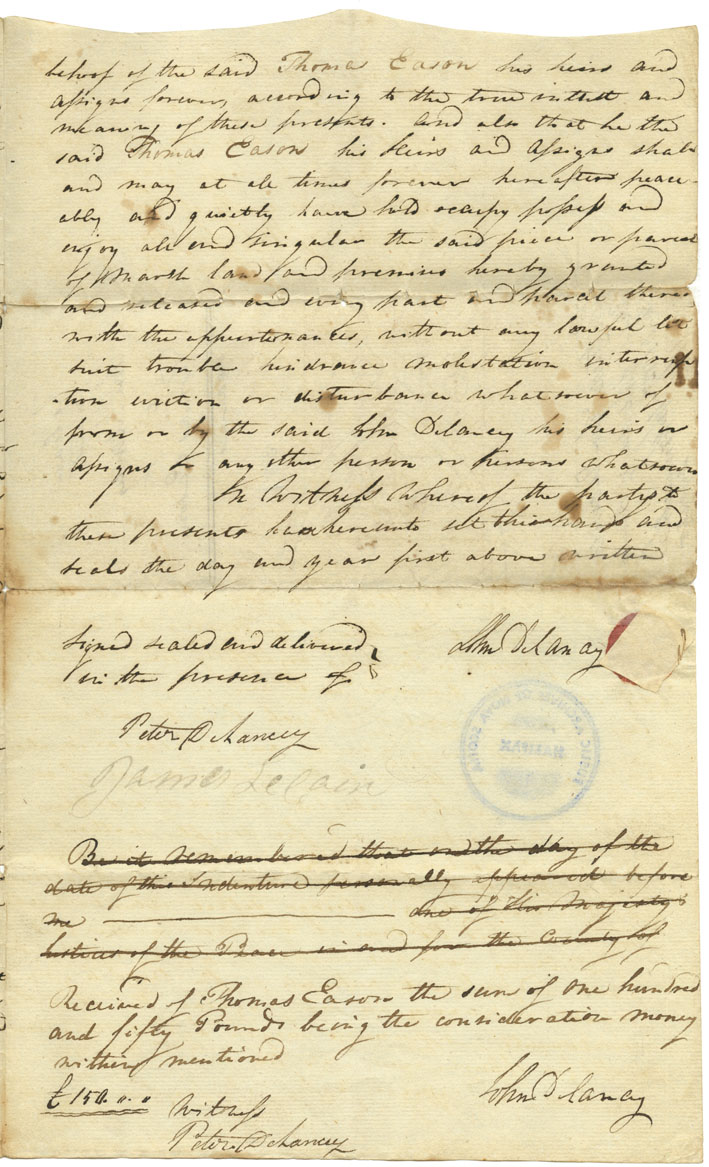 behoof of the said Thomas Eason his heirs and
assigns forever, according to the true intent and
meaning of these presents. And also that he the
said Thomas Eason his Heirs and Assigns shall
and may at all times forever hereafter peace-
ably and quietly have hold occupy possess and
enjoy all and singular the said piece or parcel
of Marsh land and premises hereby granted
and released and every part and parcel thereof
with the appurtenances, without any lawful let
suit trouble hindrance molestation interrup
-tion eviction or disturbance whatsoever of
from or by the said John Delancey his heirs or
assigns or any other person or Persons whatsoever
In Witness Whereof the partys to
these presents have hereunto set their hands and
seals the day and year first above written
Signed sealed and delivered
in the presence of
John Delancey
Peter Delancey
James
PUBLIC ARCHIVES OF NOVA SCOTIA
HALIFAX
Be it remembered that on the day of the
date of this Indenture personally appeared before
me one of His Majesty's
Justices of the Peace in and for the County of
Received of Thomas Eason the sum of One hundred
and fifty Pounds being the consideration money
within mentioned
£150. " "
John Delancey
Witness
Peter Delancey